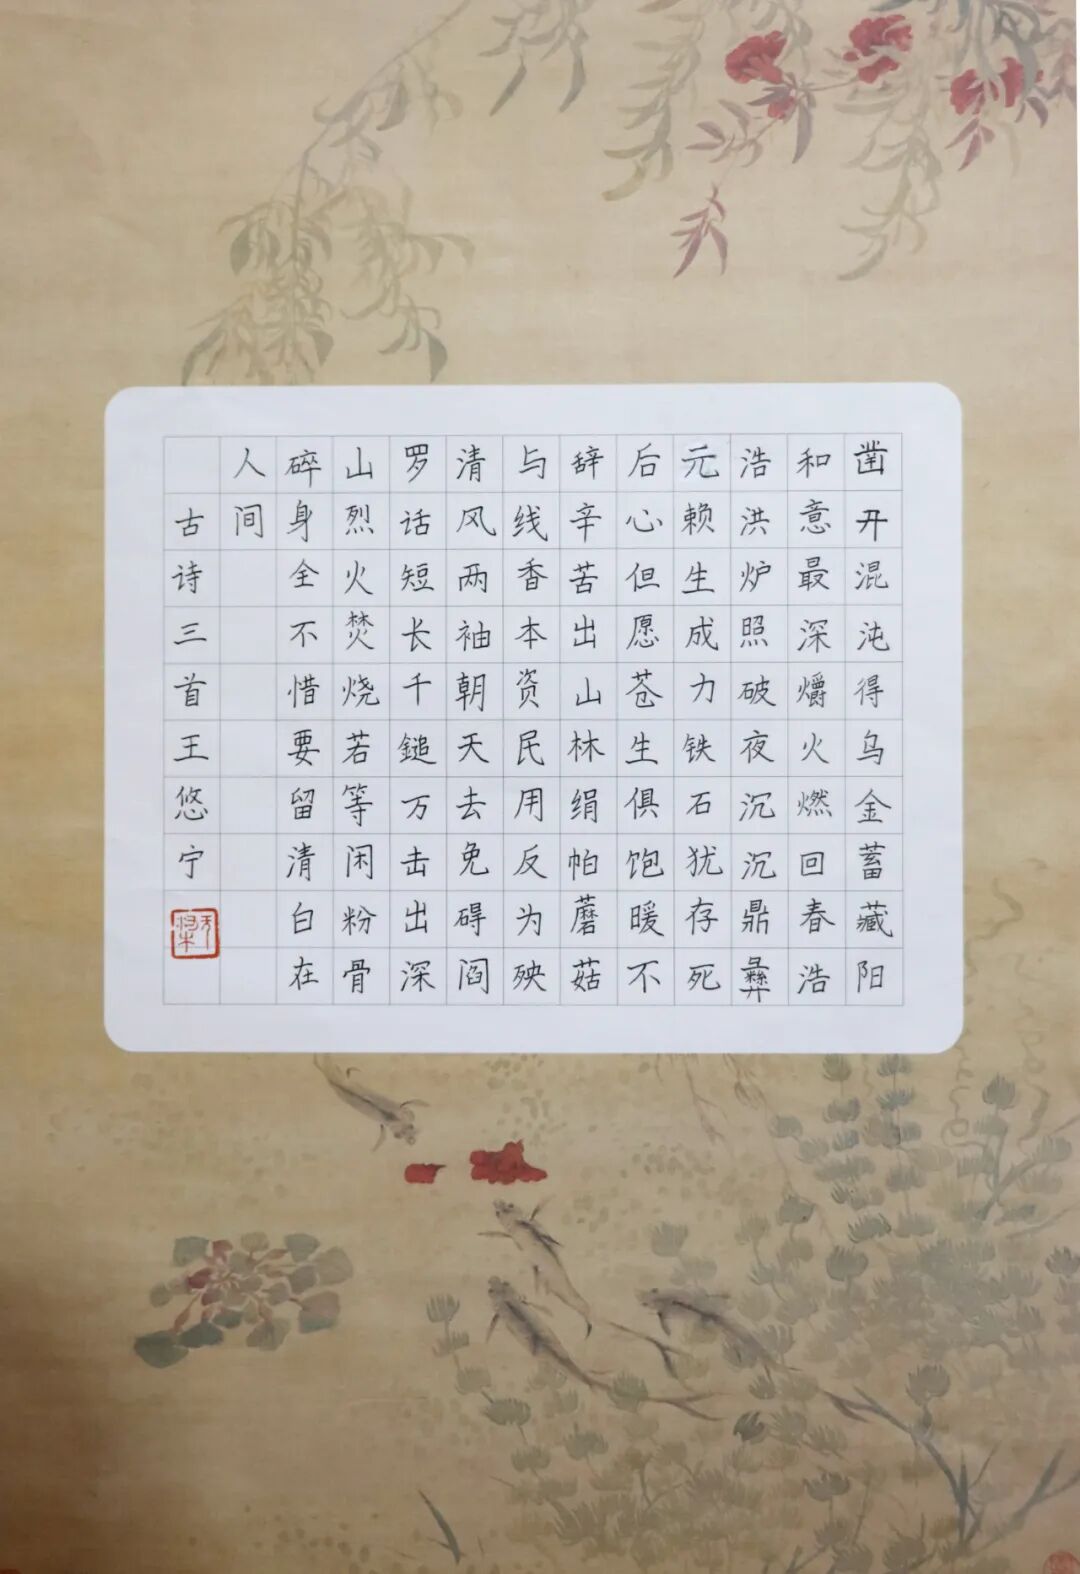 凿开混沌得乌金蓄藏阳
和意最深爝火燃回春浩
浩洪炉照破夜沉沉鼎彝
元赖生成力铁石犹存死
后心但愿苍生俱饱暖不
辞辛苦出山林绢帕蘑菇
与线香本资民用反为殃
清风两袖朝天去免碍阎
罗话短长千鎚万击出深
山烈火焚烧若等闲粉骨
碎身全不惜要留清白在
人间
古诗三首王悠宁